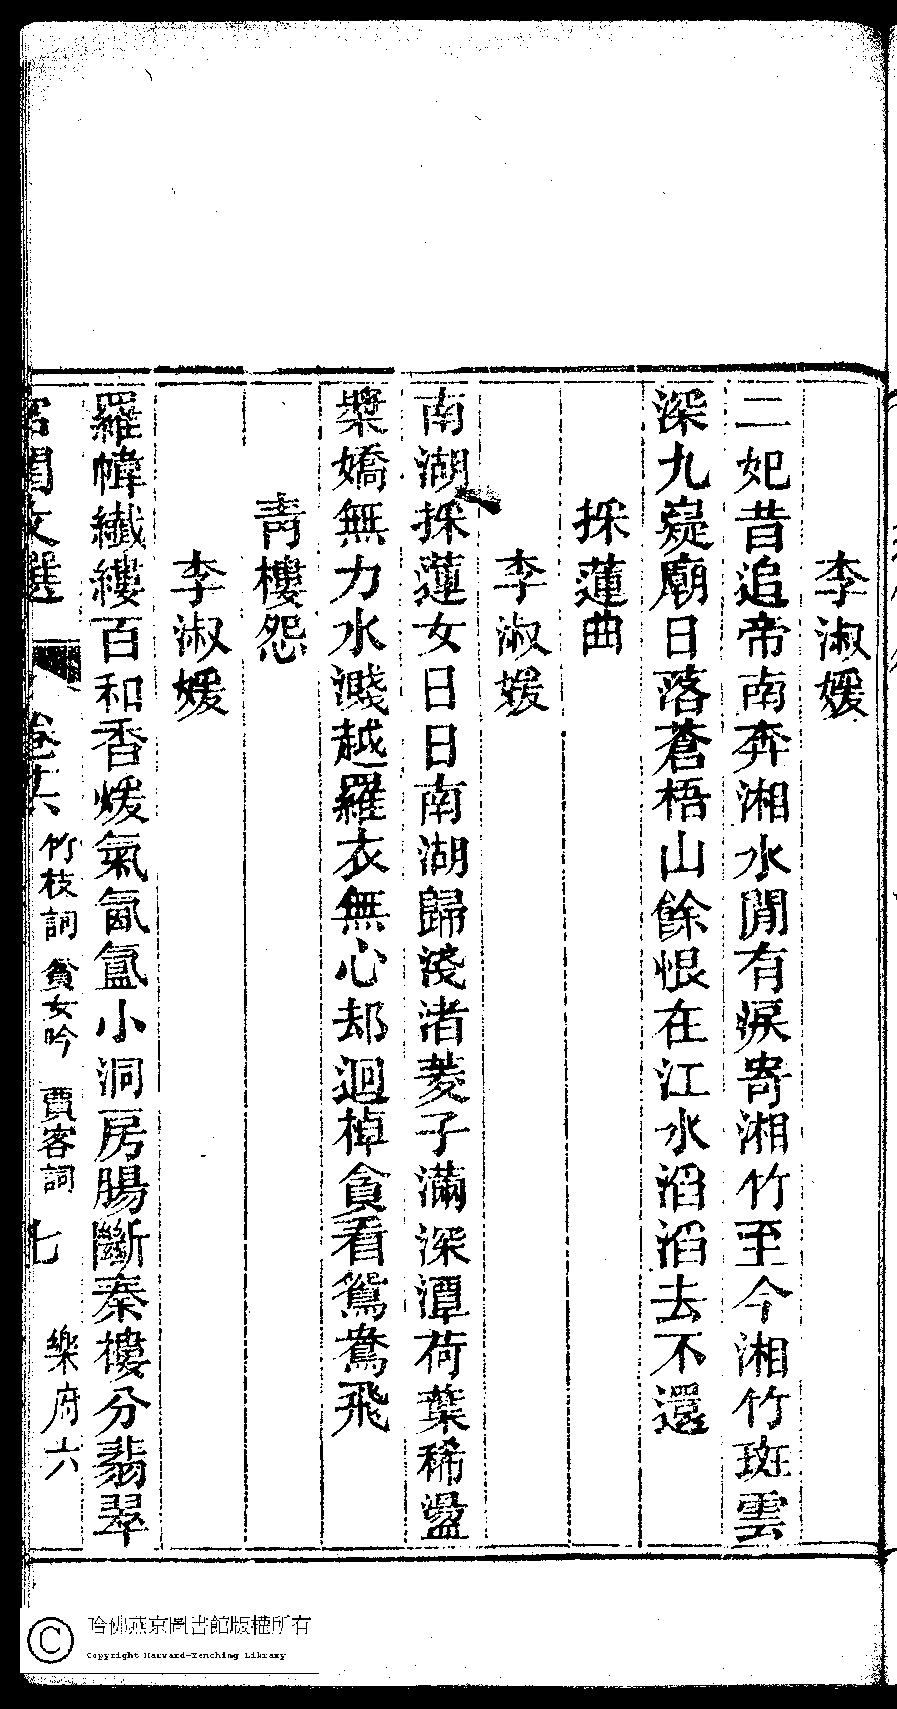 李淑媛
二妃昔追帝南奔湘水閒有淚寄湘竹至今湘竹斑雲
深九嶷廟日落蒼梧山餘恨在江水滔滔去不還
採蓮曲
李淑媛
南湖採蓮女日日南湖歸淺渚菱子滿深潭荷葉稀盪
槳嬌無力水濺越羅衣無心却迴棹貪看鴛鴦飛
青樓怨
李淑媛
羅幃纖縷百和香煖氣氤氳小洞房腸斷秦樓分翡翠
名閨文選
卷廿六 竹枝詞 貧女吟 賈客詞 七 樂府六
哈佛燕京圖書館版權所有
Copyright Harvard-Yenching Library